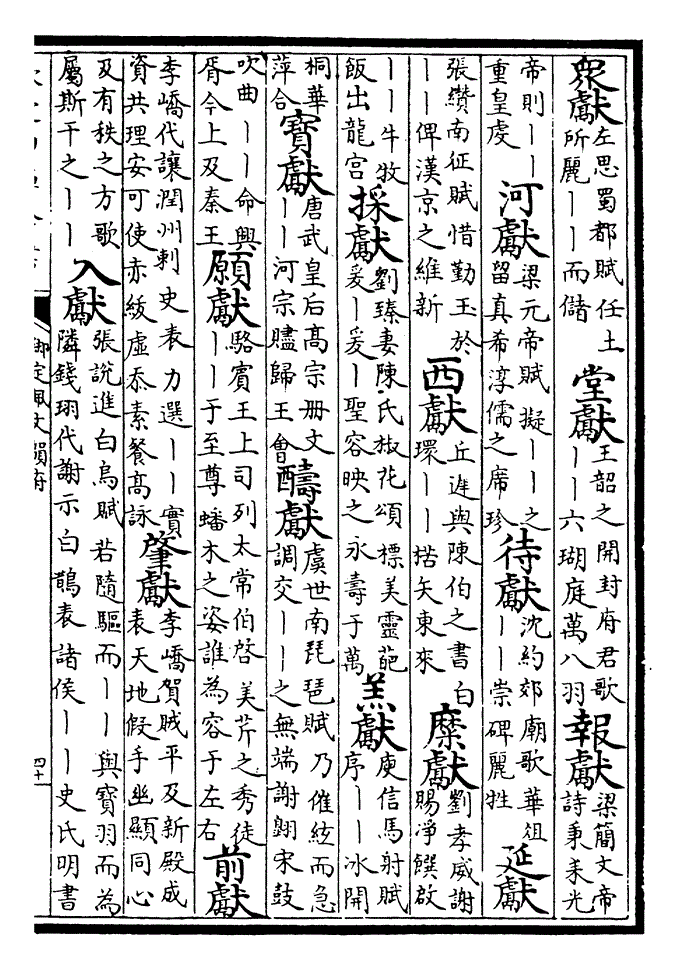 衆獻左思蜀都賦任土所麗丨丨而儲 堂獻王韶之開封府君歌丨丨六瑚庭萬八羽 報獻梁簡文帝詩秉耒光
帝則丨丨重皇虔 河獻梁元帝賦擬丨丨之留真希淳儒之席珍 待獻沈約郊廟歌華俎丨丨崇碑麗牲 延獻
張纘南征賦惜勤玉於丨丨俾漢京之維新 西獻丘遲與陳伯之書白環丨丨楛矢東來 糜獻劉孝威謝賜淨饌啟
丨丨牛牧飯出龍宫 採獻劉臻妻陳氏椒花頌標美靈葩爰丨爰丨聖容映之永壽于萬 羔獻庾信馬射賦序丨丨冰開
桐華萍合 寳獻唐武皇后髙宗册文丨丨河宗贐歸王會 醻獻虞世南琵琶賦乃催絃而急調交丨丨之無端謝翺宋鼓
吹曲丨丨命興胥今上及秦王 願獻駱賓王上司列太常伯啓美芹之秀徒丨丨于至尊蟠木之姿誰為容于左右 前獻
李嶠代讓潤州刺史表力選丨丨實資共理安可使赤紱虛忝素餐髙詠 肇獻李嶠賀賊平及新殿成表天地假手幽顯同心
及有秩之方歌屬斯干之丨丨 入獻張説進白烏賦若隨驅而丨丨與寶羽而為隣錢珝代謝示白鵲表諸侯丨丨史氏明書
御定佩文韻府
四十一